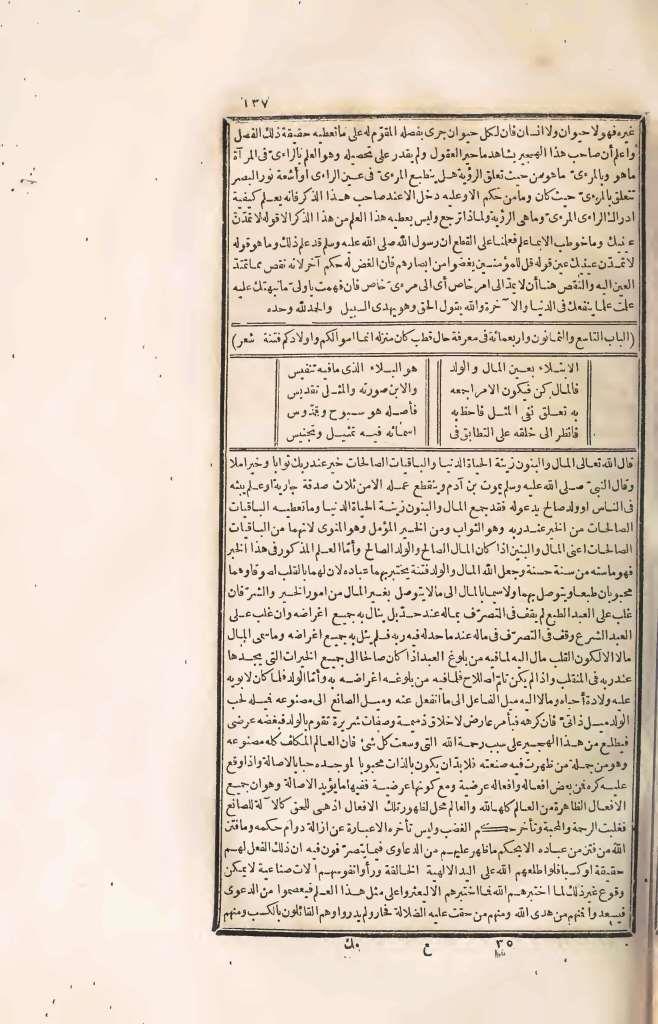 ١٣٧
غيره فهو لا حيوان ولا انسان فان لكل حيوان جرى بفصله المقوّم له على ما تعطيه حقيقة ذلك الفصل
واعلم أن صاحب هذا الهجير يشاهد ما حير العقول ولم يقدر على تحصيله وهو العلم بالرائى فى المرآة
ما هو وبالمرئى ما هو ومن حيث تعلق الرؤية هل ينطبع المرئى فى عين الرائى أو أشعة نور البصر
تتعلق بالمرئى حيث كان وما من حكم الا وعليه دخل الا عند صاحب هذا الذكر فانه يعلم كيفية
ادراك الرائى المرئى وما هى الرؤية ولماذا ترجع وليس يعطيه هذا العلم من هذا الذكر الا قوله لا تمدّنّ
عينيك وما خوطب الا بما علم فعلمنا على القطع ان رسول الله صلى الله عليه وسلم قد علم ذلك وما هو قوله
لا تمدّن عينيك عين قوله قل للمؤمنين يغضوا من ابصارهم فان الغض له حكم آخر لانه نقص مما تمتد
العين اليه والنقص هنا أن لا يمدّ الى امر خاص أى الى مرئى خاص فان فهمت يا ولىّ ما نبهتك عليه
علمت علما ينفعك فى الدنيا والآخرة والله يقول الحق وهو يهدى السبيل والحمد لله وحده
(الباب التاسع والثمانون وأربعمائة فى معرفة حال قطب كان منزله انما اموالكم واولادكم فتنة شعر)
الابتلاء بعين المال والولد هو البلاء الذى ما فيه تنفيس
فالمال كن فيكون الامر اجعه والابن صورته والمثل تقديس
به تعلق نفى المثل فاحظ به فأصله هو سبوح وقدّوس
فانظر الى خلقه على التطابق فى اسمائه فيه تمثيل وتجنيس
قال الله تعالى المال والبنون زينة الحياة الدنيا والباقيات الصالحات خير عند ربك ثوابا وخير املا
وقال النبىّ صلى الله عليه وسلم يموت بن آدم وينقطع عمله الا من ثلاث صدقة جارية او علم يبثه
فى الناس او ولد صالح يدعو له فقد جمع المال والبنون زينة الحياة الدنيا وما تعطيه الباقيات
الصالحات من الخير عند ربه وهو الثواب ومن الخير المؤمل وهو المنوى لانهما من الباقيات
الصالحات اعنى المال والبنين اذا كان المال الصالح والولد الصالح وأمّا العلم المذكور فى هذا الخبر
فهو ما سنه من سنة حسنة وجعل الله المال والولد فتنة يختبر بهما عباده لان لهما بالقلب لصوقا وهما
محبوبان طبعا ويتوصل بهما ولا سيما بالمال الى ما لا يتوصل بغير المال من امور الخير والشرّ فان
غلب على العبد الطبع لم يقف فى التصرّف بماله عند حدّ بل ينال به جميع اغراضه وان غلب على
العبد الشرع وقف فى التصرّف فى ماله عند ما حد له فيه ربه فلم ينل به جميع اغراضه وما سمى المال
مالا الا لكون القلب مال اليه لما فيه من بلوغ العبد اذا كان صالحا الى جميع الخيرات التى يجدها
عند ربه فى المنقلب واذا لم يكن تامّ الصلاح فلما فيه من بلوغه اغراضه به وأمّا الولد فلما كان لابويه
عليه ولادة أحباه ومالا اليه ميل الفاعل الى ما انفعل عنه وميل الصانع الى مصنوعه فميله لحب
الولد ميل ذاتىّ فان كرهه فبأمر عارض لاخلاق ذميمة وصفات شريرة تقوم بالولد فبغضه عرضى
فيطلع من هذا الهجير على سبب رحمة الله التى وسعت كل شئ فان العالم المكلف كله مصنوعه
وهو من جملة من ظهرت فيه صنعته فلا بدّ ان يكون بالذات محبوبا لموجده حبا بالاصالة واذا وقع
عليه كره فمن بعض افعاله وافعاله عرضية ومع كونها عرضية ففيها ما يؤيد الاصالة وهو ان جميع
الافعال الظاهرة من العالم كلها لله والعالم محل لظهور تلك الافعال اذ هى للحق كالآلة للصانع
فغلبت الرحمة والمحبة وتأخر حكم الغضب وليس تأخره الا عبارة عن ازالة دوام حكمه وما فتن
الله من فتن من عباده الا بحكم ما ظهر عليهم من الدعاوى فيما يتصرّفون فيه ان ذلك الفعل لهم
حقيقة او كسبا فلو اطلعهم الله على اليد الالهية الخالقة ورأوا نفوسهم آلات صناعية لا يمكن
وقوع غير ذلك لما اختبرهم الله فما اختبرهم الا ليعثروا على مثل هذا العلم فيعصموا من الدعوى
فيسعدوا فمنهم من هدى الله ومنهم من حقت عليه الضلالة فحار ولم يدر وهم القائلون بالكسب ومنهم
٣٥ ع